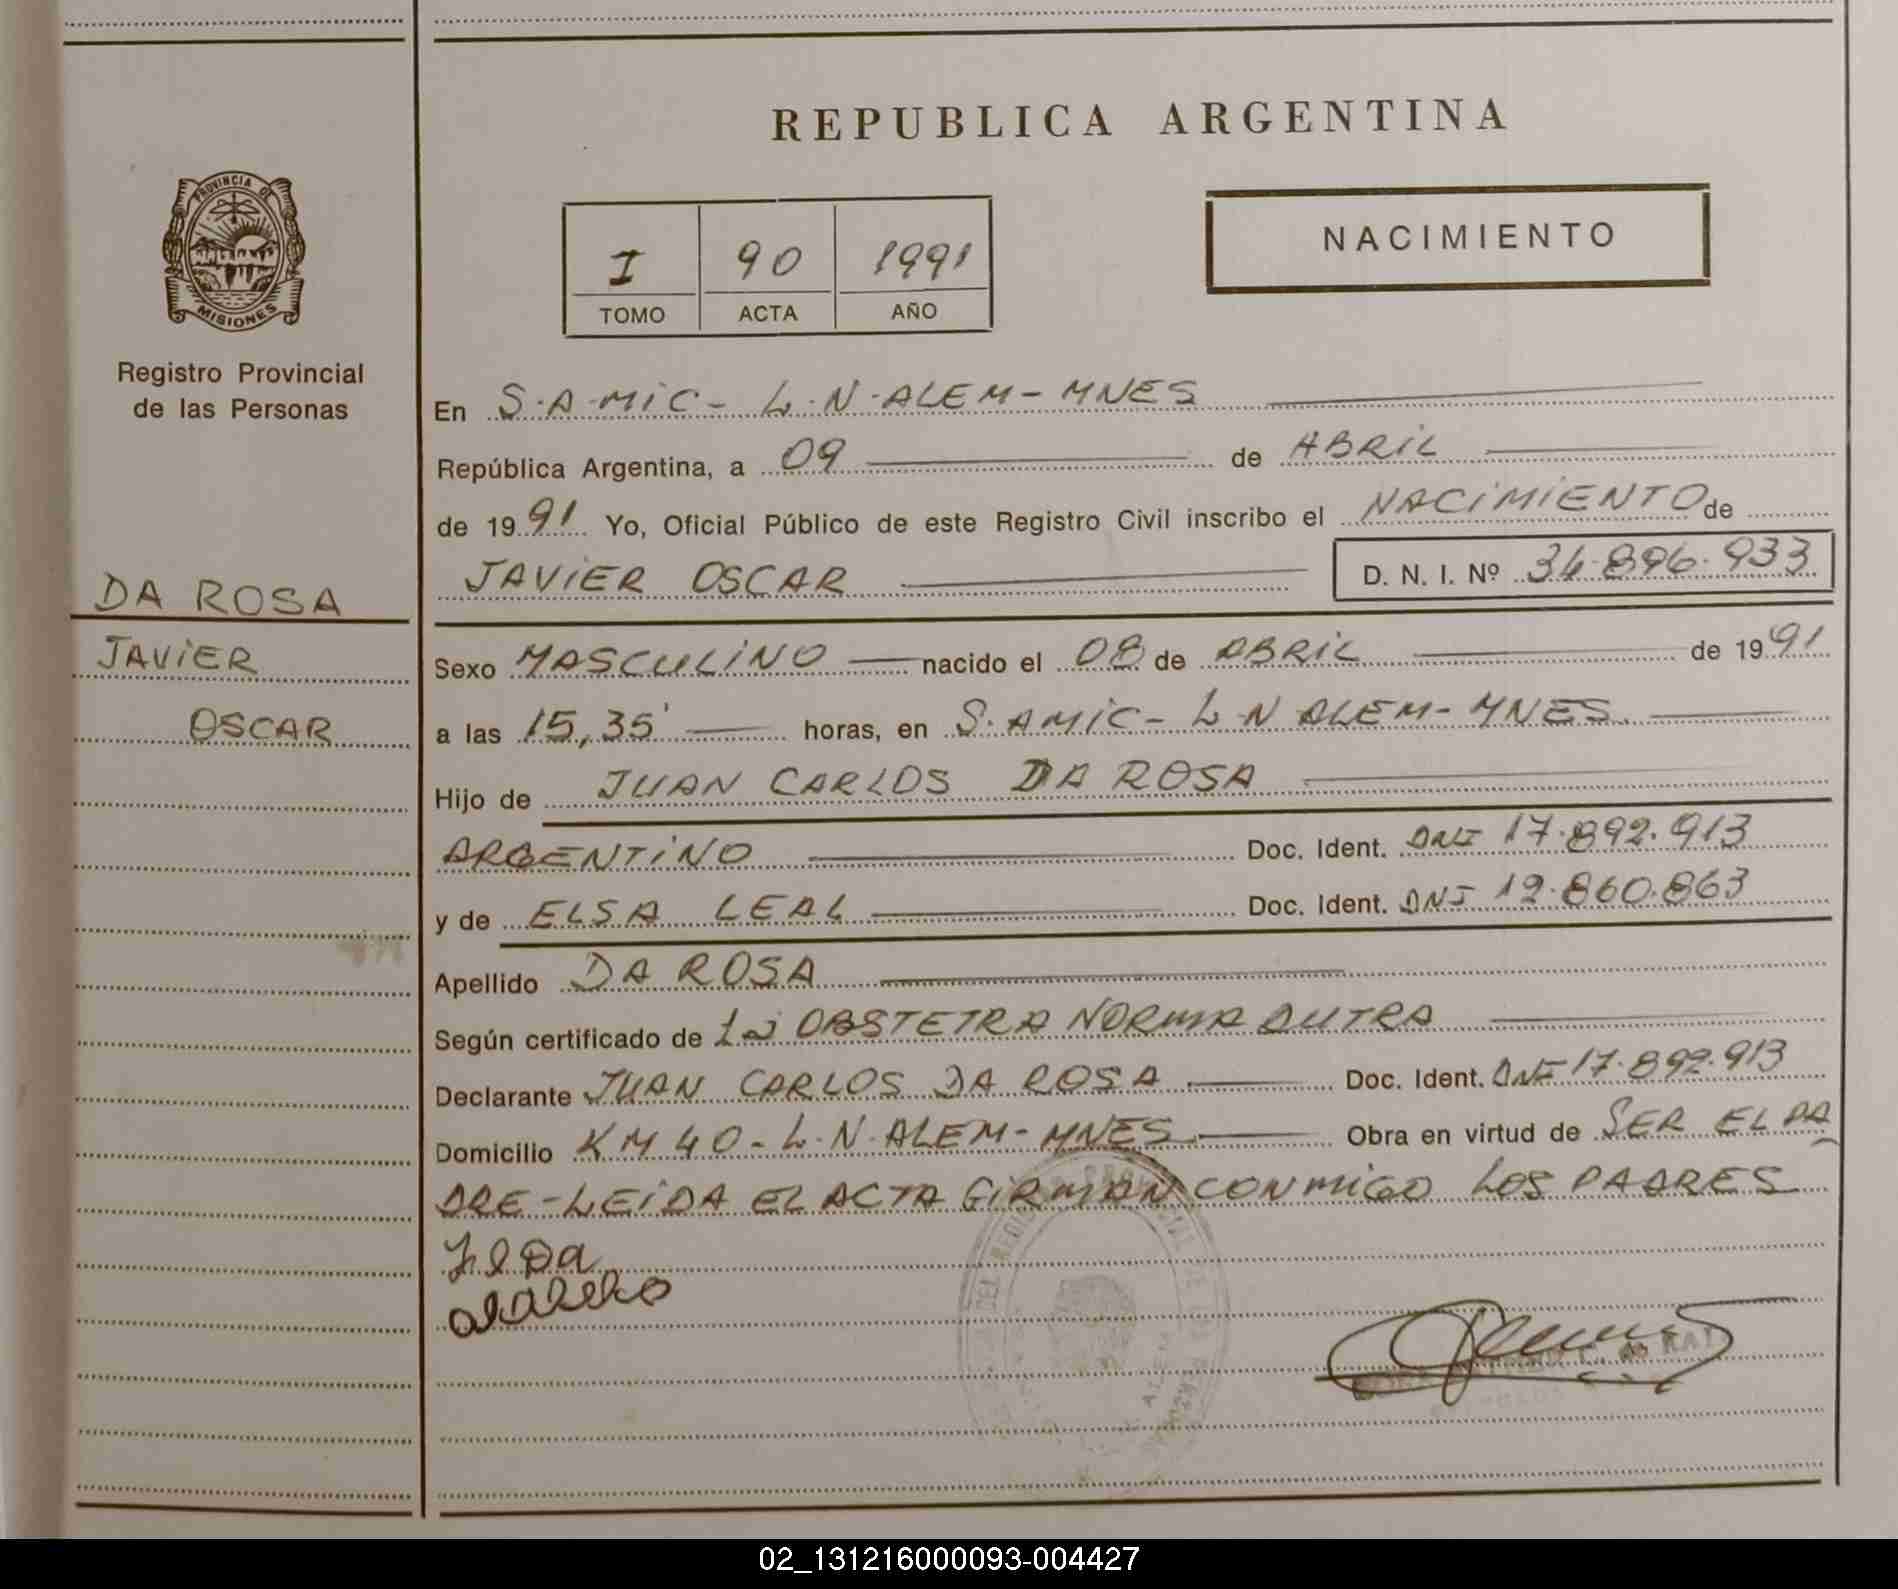 REPUBLICA ARGENTINA
PROVINCIA DE
MISIONES
Registro Provincial
de las Personas
I 90 1991
TOMO ACTA AÑO
NACIMIENTO
En S.A.MiC- L.N.ALEM-MNES
República Argentina, a 09 de ABRiL
de 1991 Yo, Oficial Público de este Registro Civil inscribo el NACiMiENTO de
JAViER OSCAR D. N. I. Nº 34.896.933
DA ROSA
JAViER
OSCAR
Sexo MASCULiNO nacido el 08 de ABRiL de 1991
a las 15,35' horas, en S.AMiC- L N ALEM-MNES
Hijo de JUAN CARLOS DA ROSA
ARGENTiNO Doc. Ident. DNI 17.892.913
y de ELSA LEAL Doc. Ident. DNI 12.860.863
Apellido DA ROSA
Según certificado de LA OBSTETRA NORMA DUTRA
Declarante JUAN CARLOS DA ROSA Doc. Ident. DNI 17.892.913
Domicilio KM 40-L.N.ALEM-MNES Obra en virtud de SER EL PA
DRE-LEiDA EL ACTA FiRMAN CONMiGO LOS PADRES
02_131216000093-004427